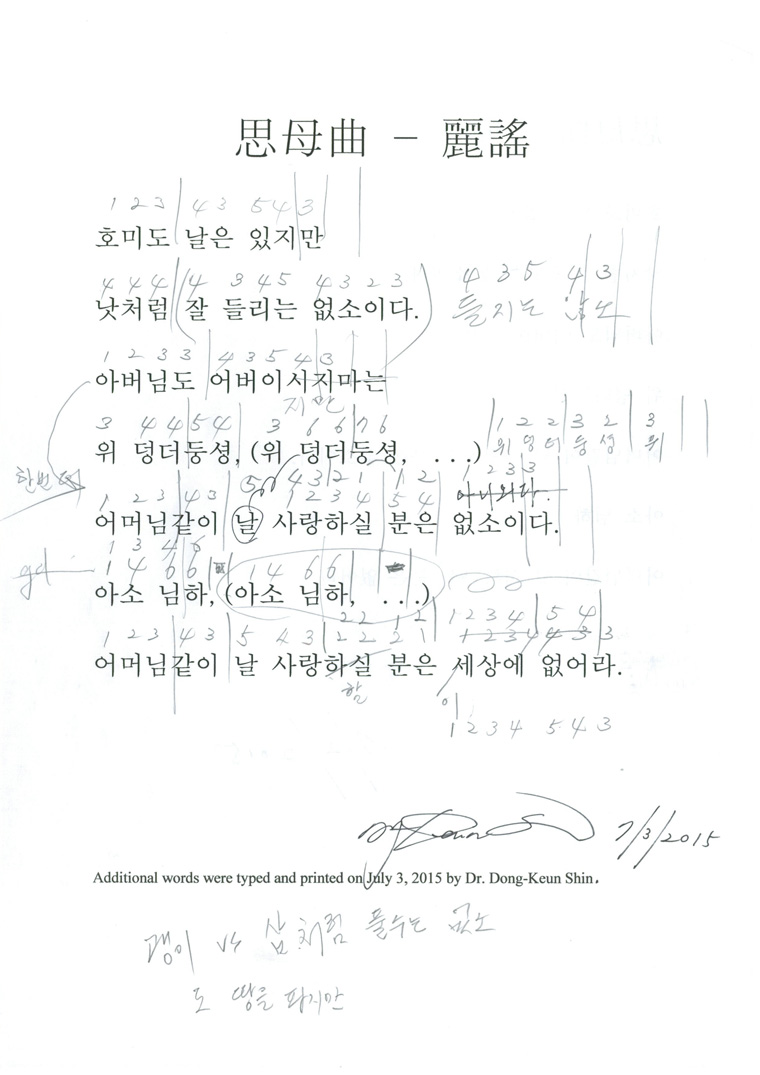 思母曲 – 麗謠
1 2 3 4 3 5 4 3
호미도 날은 있지만
4 4 4 4 3 4 5 4 3 2 3 4 3 5 4 3
낫처럼 잘 들리는 없소이다. 들지는 않소
1 2 3 3 4 3 5 4 3
아버님도 어버이시지마는
지만
3 4 4 5 4 3 6 6 7 6 1 2 2 3 2 3
위 덩더둥셩, (위 덩더둥셩, ...) 위 덩더둥셩 위
한번 더
5 4 3 2 1 1 2 1 2 3 3
1 2 3 4 3 1 2 3 4 5 4 아니외다.
어머님같이 날 사랑하실 분은 없소이다.
1 3 4 6
1 4 6 6 1 4 6 6
아소 님하, (아소 님하, ...)
2 2 1 2 1 2 3 4 5 4
1 2 3 4 3 5 4 3 2 2 2 1 1 2 3 4 4 3 3
어머님같이 날 사랑하실 분은 세상에 없어라.
할 이
1 2 3 4 5 4 3
7/3/2015
Additional words were typed and printed on July 3, 2015 by Dr. Dong-Keun Shin.
괭이 vs 삽처럼 풀수는 없소
도 땅을 파지만